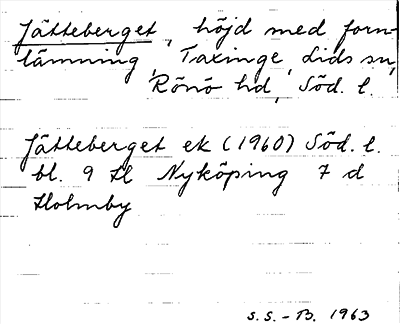 Jätteberget, höjd med forn-
lämning, Taxinge, Lids sn,
Rönö hd, Söd. l.
Jätteberget ek (1960) Söd. l.
bl. 9 H Nyköping 7 d
Holmby
S.S.-B. 1963